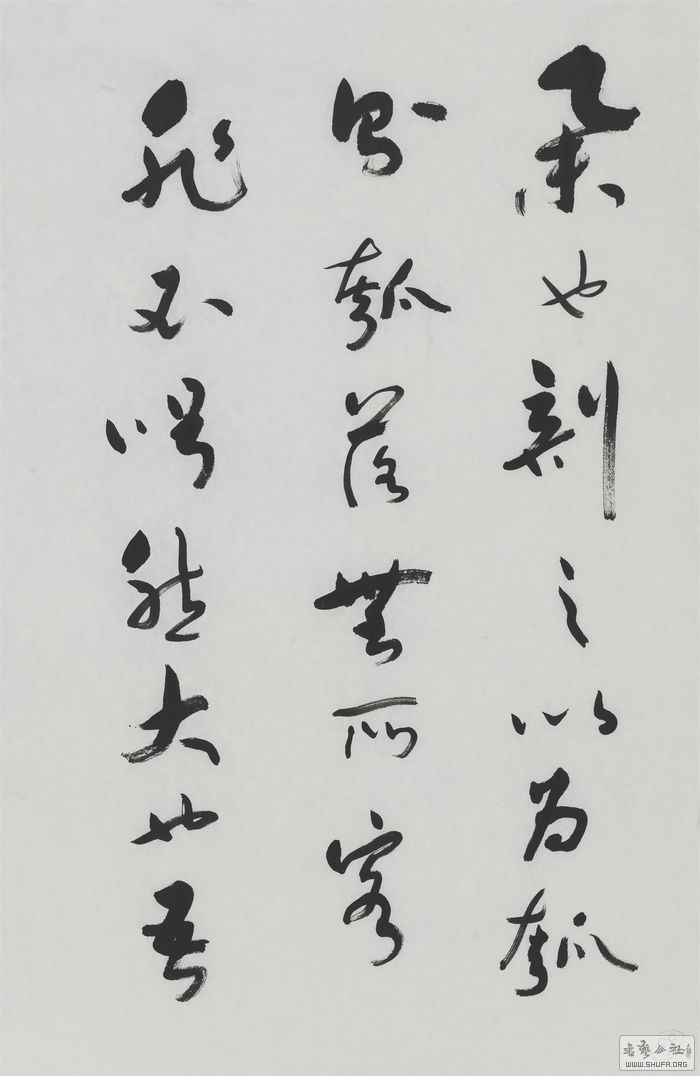 也剖之以為瓠
則瓠落無所容
非不呺然大也吾
書藝公社
WWW.SHUFA.ORG